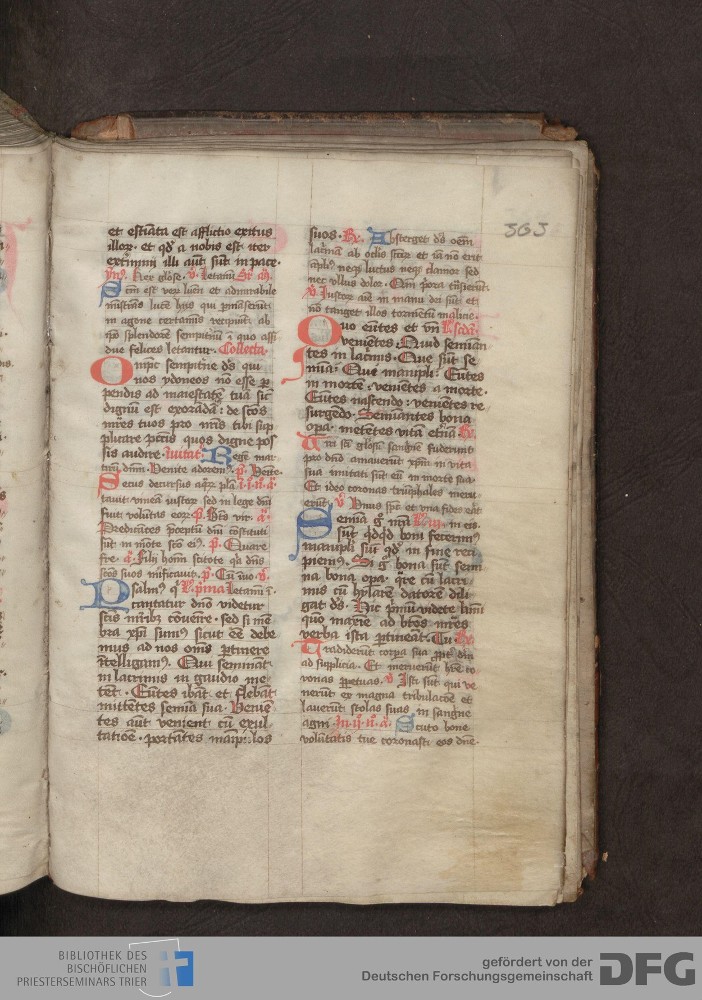 et estimata est afflictio exitus
illoꝝ · et qd̕ a nobis est iter
extͥminii illi aūt sūt in pace ·
Rex glōse · v̕. Letamī
Sc̄m est veꝝ lumē et admirabile
mistrās lucē hijs qui pmāserūt
in agone certaminis recipiūt ab
ip̄o splendorē sempitnū ī quo assi
due felices letantur · Collecta ·
Omp̄c sempitne ds̄ qui
nos ydoneos nō esse ꝑ
pendis ad maiestatē tuā sic
dignū est exorādā : de scōs
mr̄es tuos pro nr̄is tibi sup
plicare pctīs quos digne pos
sis audire · Inuitat̕ Regē mar
tirū dn̄m · Venite adorem⁹ · p̄. Venite ·
Secus decursus aq̄ꝝ plā
tauit vineā iustoꝝ sed in lege dn̄i
fuit volūtas eoꝝ p̄. Bt̄s vir · a̕.
Predicātes p̄ceptū dn̄i cōstituti
sūt in mōte scō ei⁹ · p̄. Quare
fre · a̕. Filij homī scitote qa dn̄s
scōs suos mͥificauit · p̄. Cū īuo v̕.
Psalm⁹ qͥ L̕. pͥma Letamī ī
cantatur dn̄o videtur
scīs mr̄ibꝫ cōuēire · sed si mē
bra xpī sum⁹ sicut eē debe
mus ad nos oms̄ ptinere
ītelligim⁹ · Qui seminant
in lacrimis in gaudio me
tēt · Eūtes ibāt et flebāt
mittētes semīa sua · Veniē
tes aūt venient cū exul
tatiōe · portātes maīp̄los
suos · R̕. Absterget ds̄ oēm
lacͥmā ab oclīs scōꝝ et iā nō erit
āpliꝰ neqꝫ luctus neqꝫ clamor sed
nec vllus dolor · Qm̄ pͥora tͣnsierūt
v̕ Iustoꝝ aīe in manu dei sūt et
nō tanget illos tormētū malicie ·
Quo eūtes et vn̄ L̕. scdā ·
veniētes · Quid seminā
tes in lacͥmis · Que sūt se
mīa : Qui manipli · Eūtes
in mortē · veniētes a morte ·
Eūtes nascendo : veniētes re
surgēdo · Seminantes bona
opa · metētes vitā etͥnā · R̕.
Viri scī gl̄osū sanguīē fuderunt
pro dn̄o amauerūt xpm̄ in vita
sua imitati sūt eū in morte sua
Et ideo coronas triūphales merue
erūt v̕ Vnus spc̄ et vna fides erāt
Semīa gͦ nr̄a L̕. iij. in eis
sūt qdqd boni fecerim⁹
manipli sūt qd̕ in fine reci
piem⁹ · Si gͦ bona sūt semī
na bona opa · qͣre cū lacri
mis cū hylarē datorē dili
gat ds̄ · Hic pͥmū videte km̄i
que maxīe ad btōs mr̄es
verba ista ptineāt · Tu R̕.
Tradiderūt corpa sua ꝓpt̄ dm̄
ad supplicia · Et meruerūt hr̄e co
ronas ꝑpetuas · v̕ Isti sūt qui ve
nerūt ex magna tribulacōe et
lauerūt stolas suas in sangine
agni · In ijͦ. nͦ. a̕. Scuto bone
volūtatis tue coronasti eos dn̄e ·
BIBLIOTHEK DES
BISCHÖFLICHEN
PRIESTERSEMINARS TRIER
gefördert von der
Deutschen Forschungsgemeinschaft
DFG